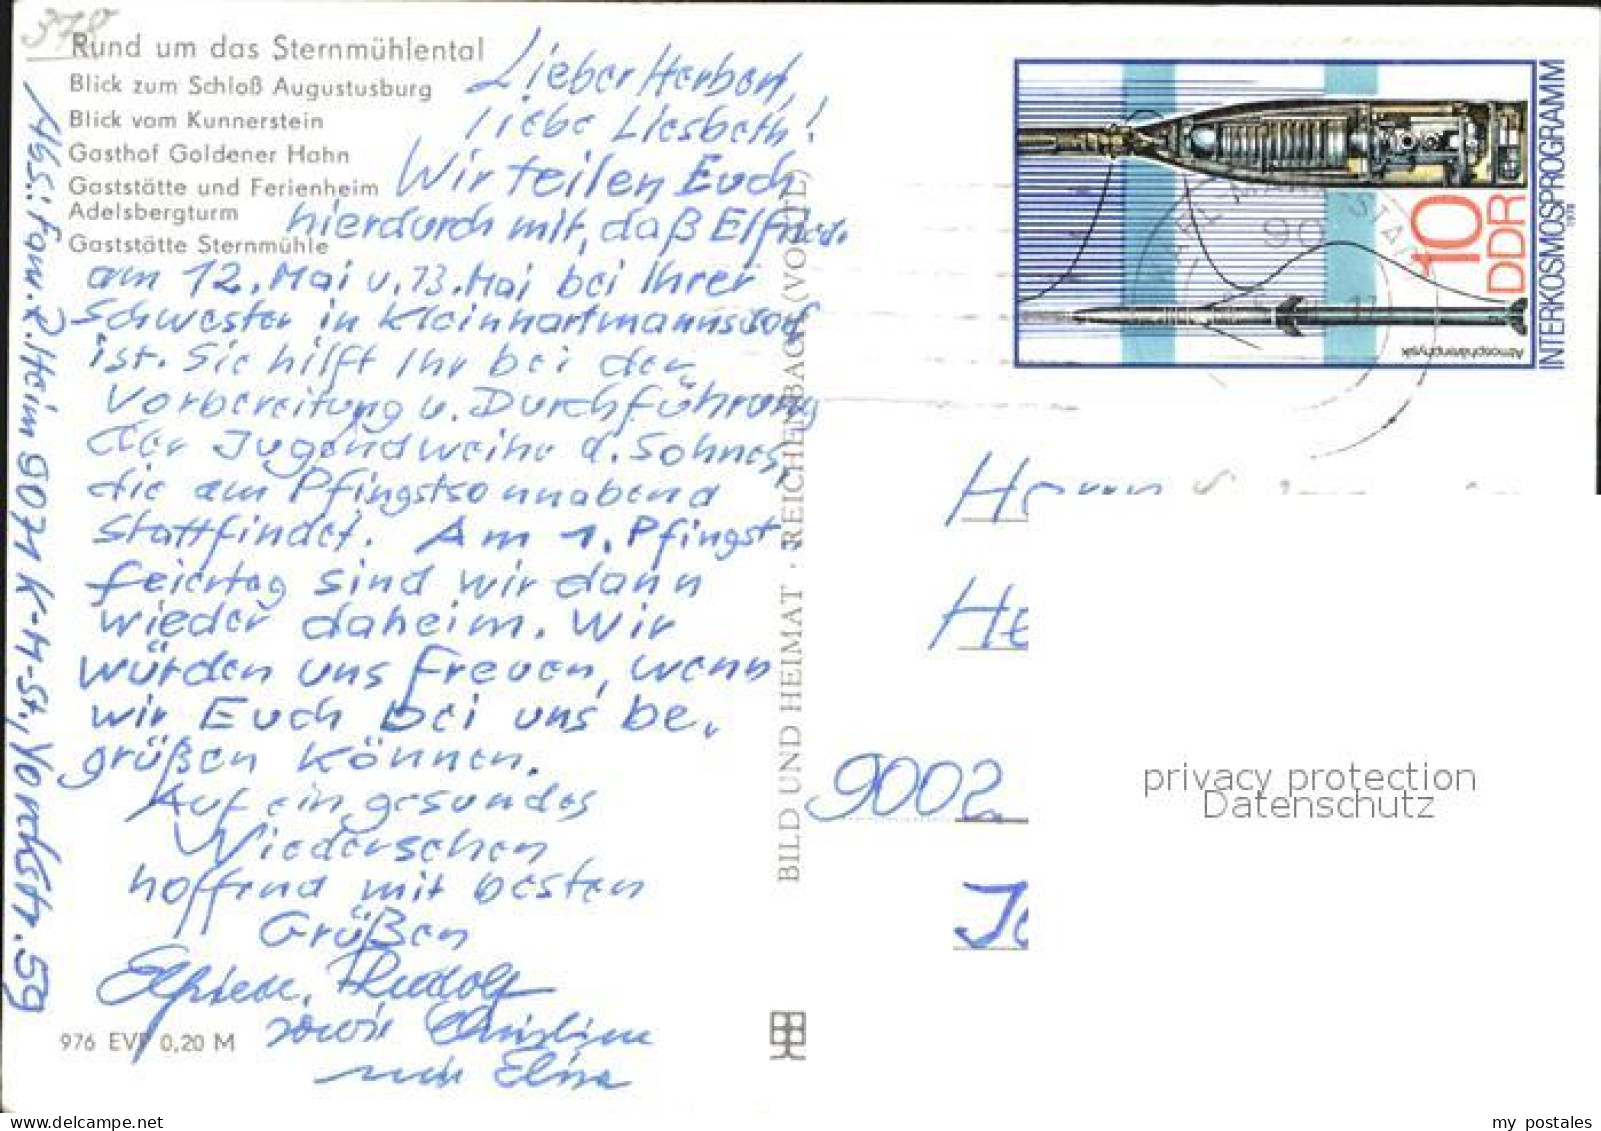 378
Rund um das Sternmühlental
Blick zum Schloß Augustusburg
Blick vom Kunnerstein
Gasthof Goldener Hahn
Gaststätte und Ferienheim
Adelsbergturm
Gaststätte Sternmühle
Lieber Herbert,
liebe Liesbeth!
Wir teilen Euch
hierdurch mit, daß Elfried.
am 12. Mai u. 13. Mai bei Ihrer
Schwester in Kleinhartmannsdorf
ist. Sie hilft Ihr bei der
Vorbereitung u. Durchführung
der Jugendweihe d. Sohnes,
die am Pfingstsonnabend
stattfindet. Am 1. Pfingst-
feiertag sind wir dann
wieder daheim. Wir
würden uns freuen, wenn
wir Euch bei uns be-
grüßen können.
Auf ein gesundes
Wiedersehen
hoffend mit besten
Grüßen
Elfriede, Rudolf
sowie Christine
und
Abs.: Fam. R. Heim 9071 K-M-St., Yorckstr. 59
976 EVP 0,20 M
BILD UND HEIMAT · REICHENBACH (VOGTL)
INTERKOSMOSPROGRAMM
1978
10
DDR
Atmosphärenphysik
90
17
Herrn
He
9002
privacy protection
Datenschutz
my postales